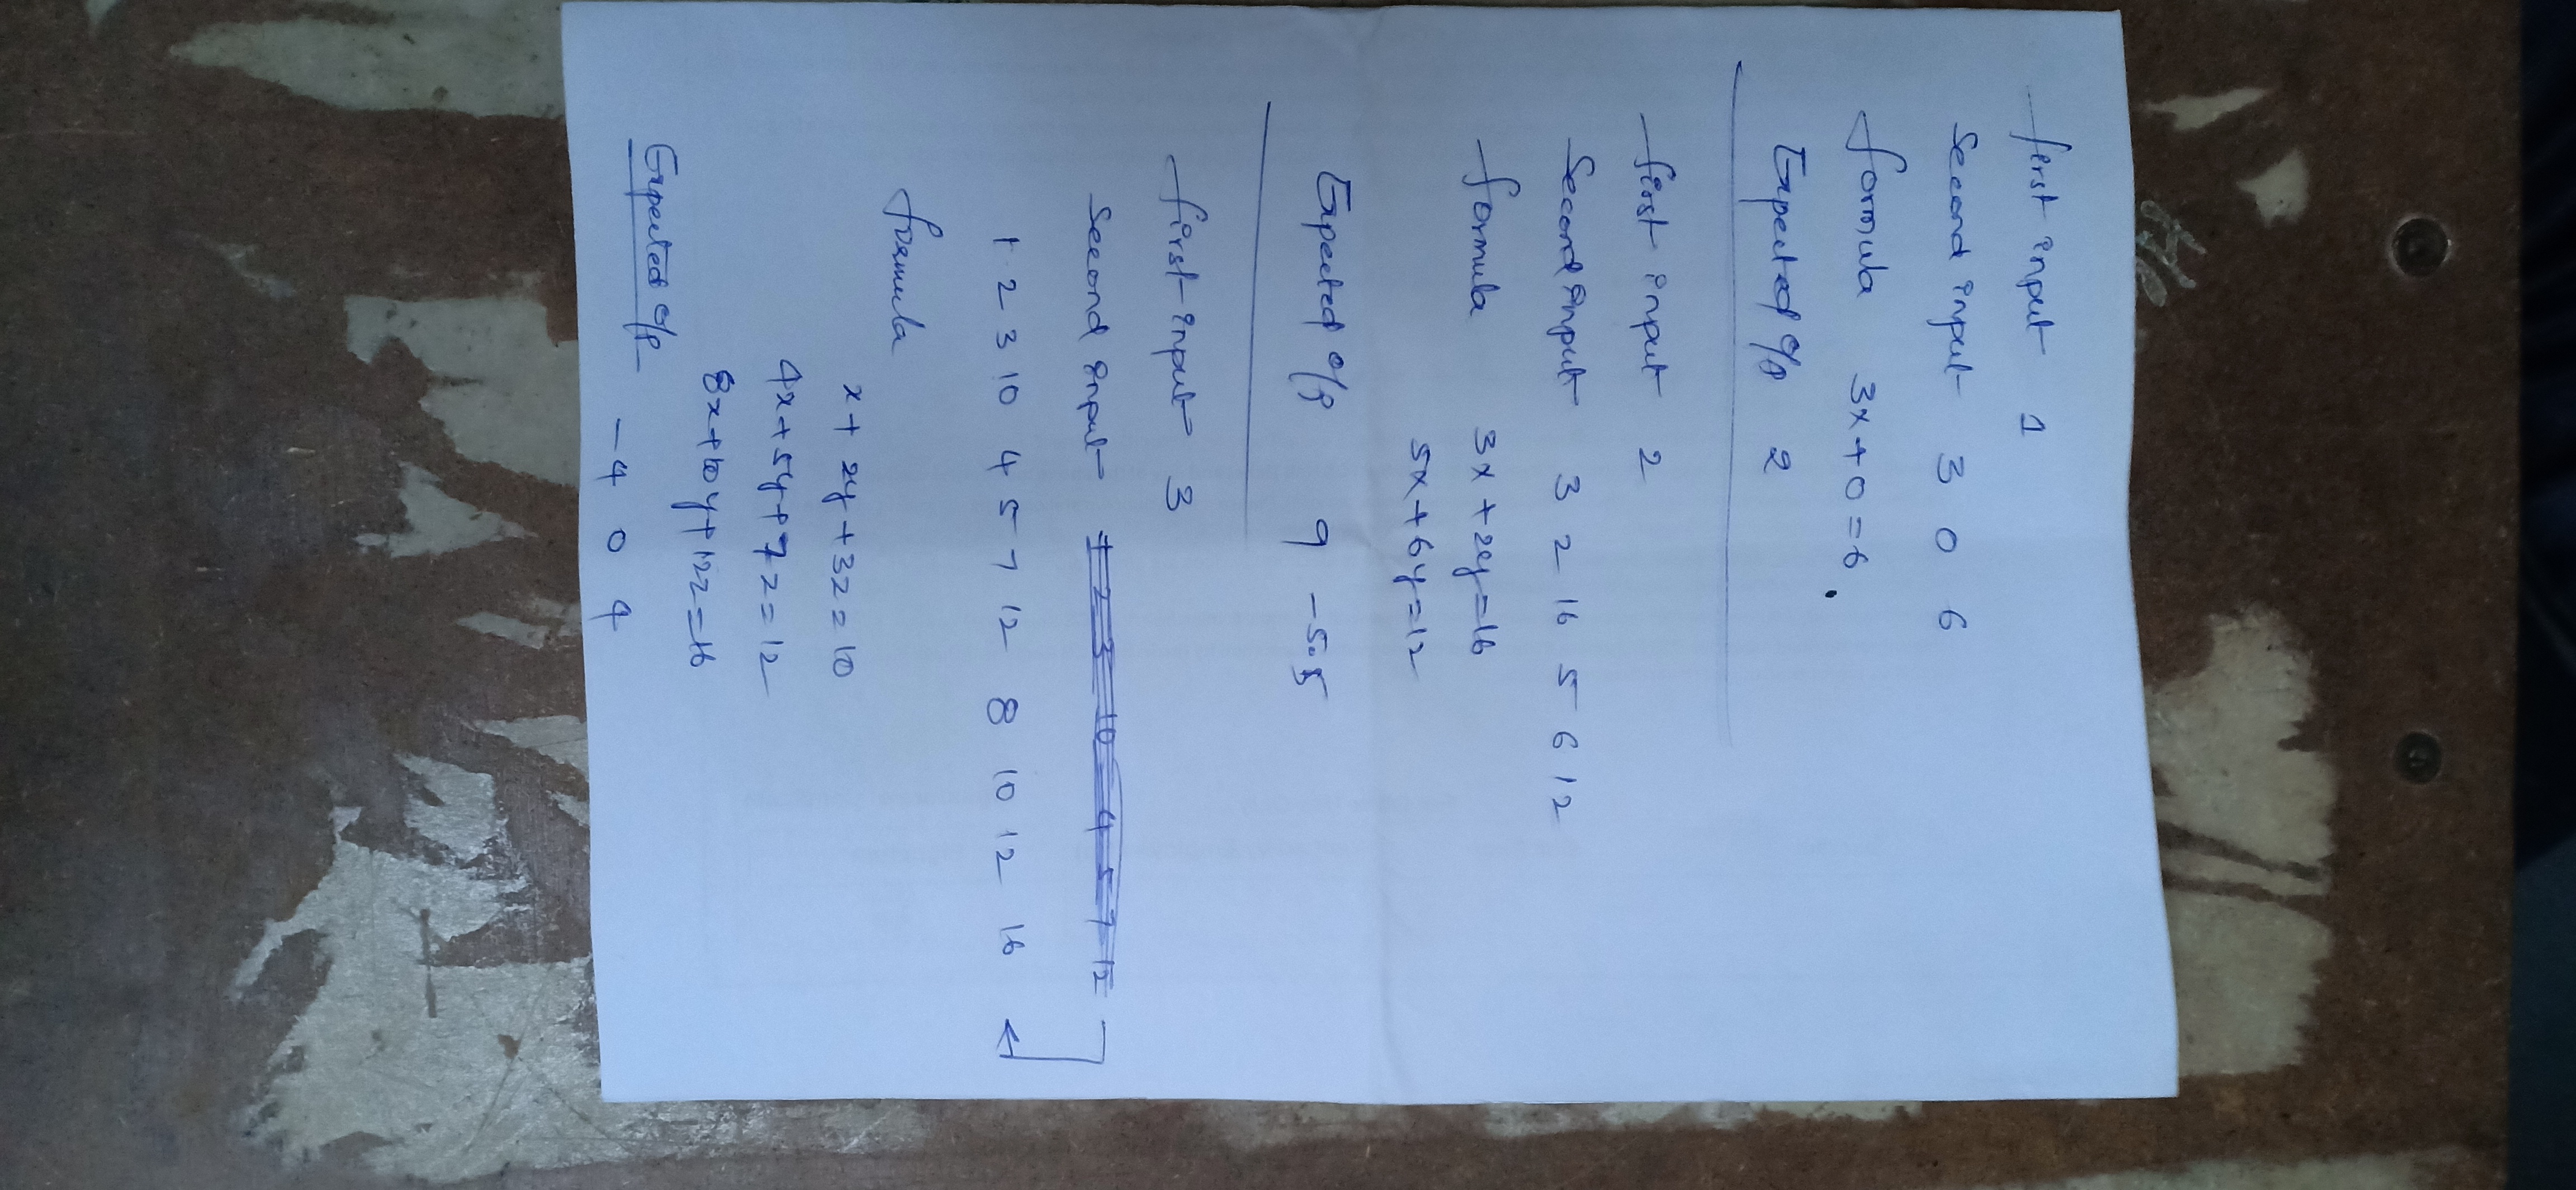 first input 1
Second input 3 0 6
formula 3x+0=6.
Expected o/p 2
first input 2
Second input 3 2 16 5 6 12
formula 3x+2y=16
5x+6y=12
Expected o/p 9 -5.5
first input 3
Second input 1 2 3 10 4 5 7 12
1 2 3 10 4 5 7 12 8 10 12 16
formula
x+2y+3z=10
4x+5y+7z=12
8x+10y+12z=16
Expected o/p
-4 0 4